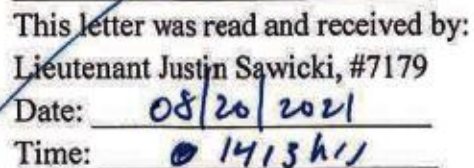 This letter was read and received by:
Lieutenant Justin Sawicki, #7179
Date: 08/20/2021
Time: 1413 hrs